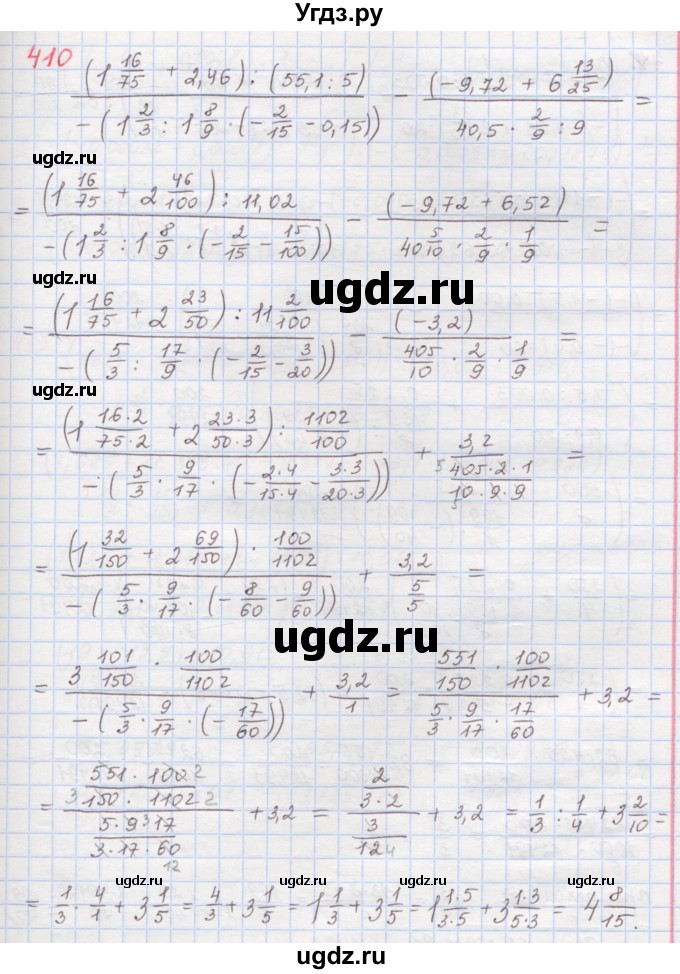 Угдз.ру
410
(1 16/75 + 2,46) : (55,1 : 5) / -(1 2/3 : 1 8/9 · (-2/15 - 0,15)) - (-9,72 + 6 13/25) / 40,5 · 2/9 : 9 =
ugdz.ru
= (1 16/75 + 2 46/100) : 11,02 / -(1 2/3 : 1 8/9 · (-2/15 - 15/100)) - (-9,72 + 6,52) / 40 5/10 · 2/9 · 1/9 =
ugdz.ru
ugdz.ru
= (1 16/75 + 2 23/50) : 11 2/100 / -(5/3 : 17/9 · (-2/15 - 3/20)) - (-3,2) / 405/10 · 2/9 · 1/9 =
ugdz.ru
= (1 16·2/75·2 + 2 23·3/50·3) : 1102/100 / -(5/3 · 9/17 · (-2·4/15·4 - 3·3/20·3)) + 3,2 / 405·2·1/10·9·9 =
ugdz.ru
= (1 32/150 + 2 69/150) · 100/1102 / -(5/3 · 9/17 · (-8/60 - 9/60)) + 3,2 / 5/5 =
ugdz.ru
ugdz.ru
= 3 101/150 · 100/1102 / -(5/3 · 9/17 · (-17/60)) + 3,2/1 = 551/150 · 100/1102 / 5/3 · 9/17 · 17/60 + 3,2 =
ugdz.ru
= 551·100/150·1102 / 5·9·17/3·17·60 + 3,2 = 2/3·2 / 3/12 + 3,2 = 1/3 : 1/4 + 3 2/10 =
ugdz.ru
ugdz.ru
ugdz.ru
= 1/3 · 4/1 + 3 1/5 = 4/3 + 3 1/5 = 1 1/3 + 3 1/5 = 1 1·5/3·5 + 3 1·3/5·3 = 4 8/15.
ugdz.ru